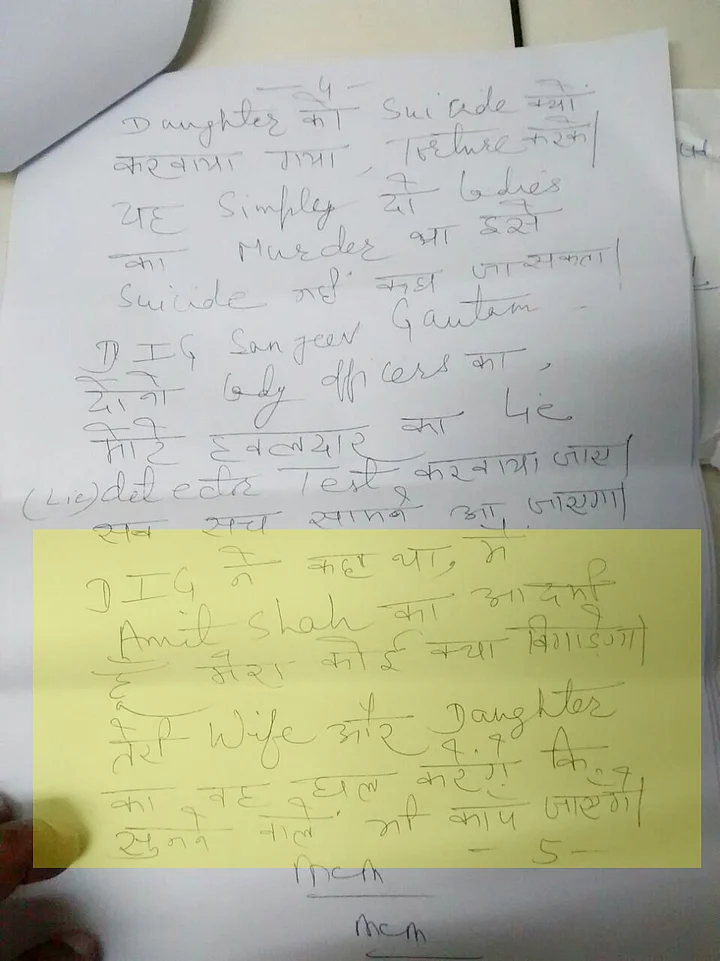 - 4 -
Daughter को Suicide क्यों
करवाया गया, Torture करके।
यह Simply दो ladies
का Murder था इसे
Suicide नहीं कहा जा सकता।
DIG Sanjeev Gautam -
दोनो lady officers का,
मोटे हवलदार का Lie
(Lie) detector Test करवाया जाए।
सब सच सामने आ जाएगा।
DIG ने कहा था, मैं
Amit Shah का आदमी
हूँ मेरा कोई क्या बिगाड़ेगा।
तेरी Wife और Daughter
का वह हाल करेगें कि
सुनने वाले भी कांप जाएंगे।
- 5 -